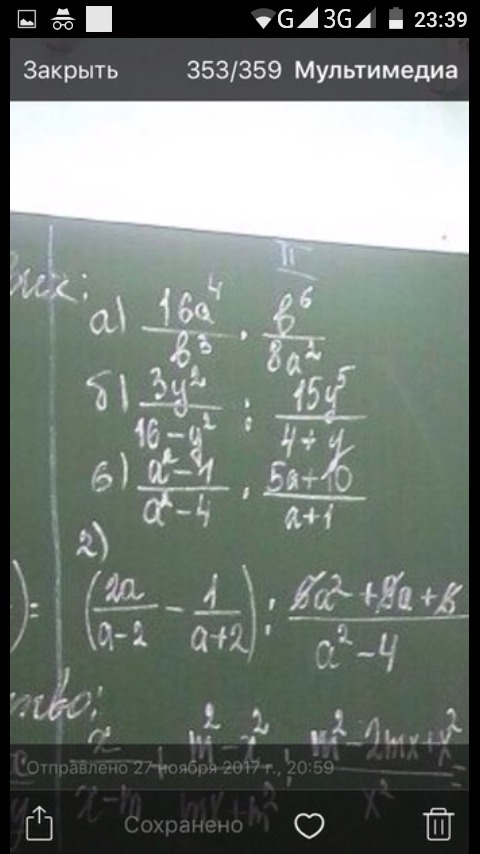 G 3G 23:39
Закрыть 353/359 Мультимедиа
II
а) 16a⁴/b³ · b⁶/8a²
б) 3y²/16-y² : 15y⁵/4+y
в) a²-1/a²-4 · 5a+10/a+1
2)
)= (2a/a-2 - 1/a+2) : a²+a+/a²-4
m²-x² m²-2mx+x²
x-m mx+m² x²
Отправлено 27 ноября 2017 г., 20:59
Сохранено